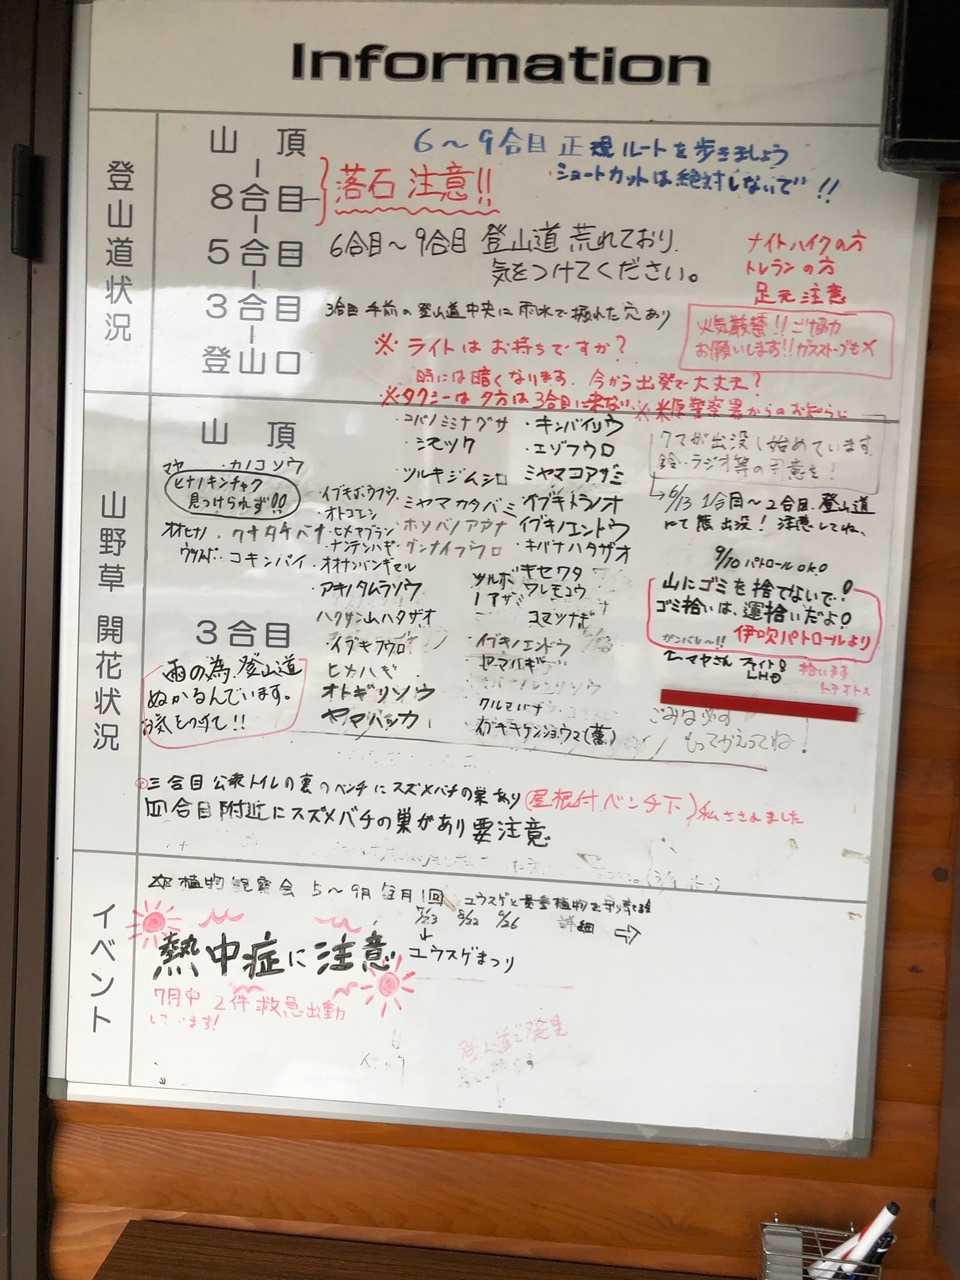 Information
登山道状況
山頂
8合目
5合目
3合目
登山口
6〜9合目 正規ルートを歩きましょう
ショートカットは絶対しないで!!
落石注意!!
6合目〜9合目 登山道 荒れており
気をつけてください。
ナイトハイクの方
トレランの方
足元注意
3合目手前の登山道中央に雨水で掘れた穴あり
火気厳禁!!ご協力
お願いします!!ガスストーブも×
※ライトはお持ちですか?
時には暗くなります。今から出発で大丈夫?
※タクシーは夕方は3合目に来ない
※米原警察署からのお知らせ
クマが出没し始めています
鈴・ラジオ等の用意を!
6/13 1合目〜2合目 登山道
にて熊出没!注意してね、
山野草 開花状況
山頂
・カノコソウ
ヒナノキンチャク
見つけられず!!
・コバノミミナグサ
・キンバイソウ
・シモツケ
・エゾフウロ
ツルキジムシロ
ミヤマコアザミ
・イブキボウフウ
ミヤマカタバミ
イブキトラノオ
オトコエシ
イブキノエントウ
キバナハタザオ
コキンバイ
オオナンバンギセル
キセワタ
アキノタムラソウ
ツルボ
ワレモコウ
ハクサンハタザオ
コマツナギ
・イブキフウロ
イブキノエンドウ
ヒカハギ
ヤマハギ
オトギリソウ
クルマバナ
ヤマハッカ
3合目
雨の為、登山道
ぬかるんでいます。
お気をつけて!!
9/10 パトロール OKO
山にゴミを捨てないで!
ゴミ拾いは、運拾いだよ!
ガンバレ〜!! 伊吹パトロールより
マヤさん ファイト!
ごみは必ず
もってかえってね!
三合目 公衆トイレの裏のベンチにスズメバチの巣あり(屋根付ベンチ下)私さされました
四合目附近にスズメバチの巣があり要注意
イベント
植物観察会 5〜9月 毎月1回
ユウスゲと貴重植物を守り育てる会
7/23 8/22 9/26
詳細 ⇨
↓
ユウスゲまつり
熱中症に注意
7月中 2件救急出動
しています!